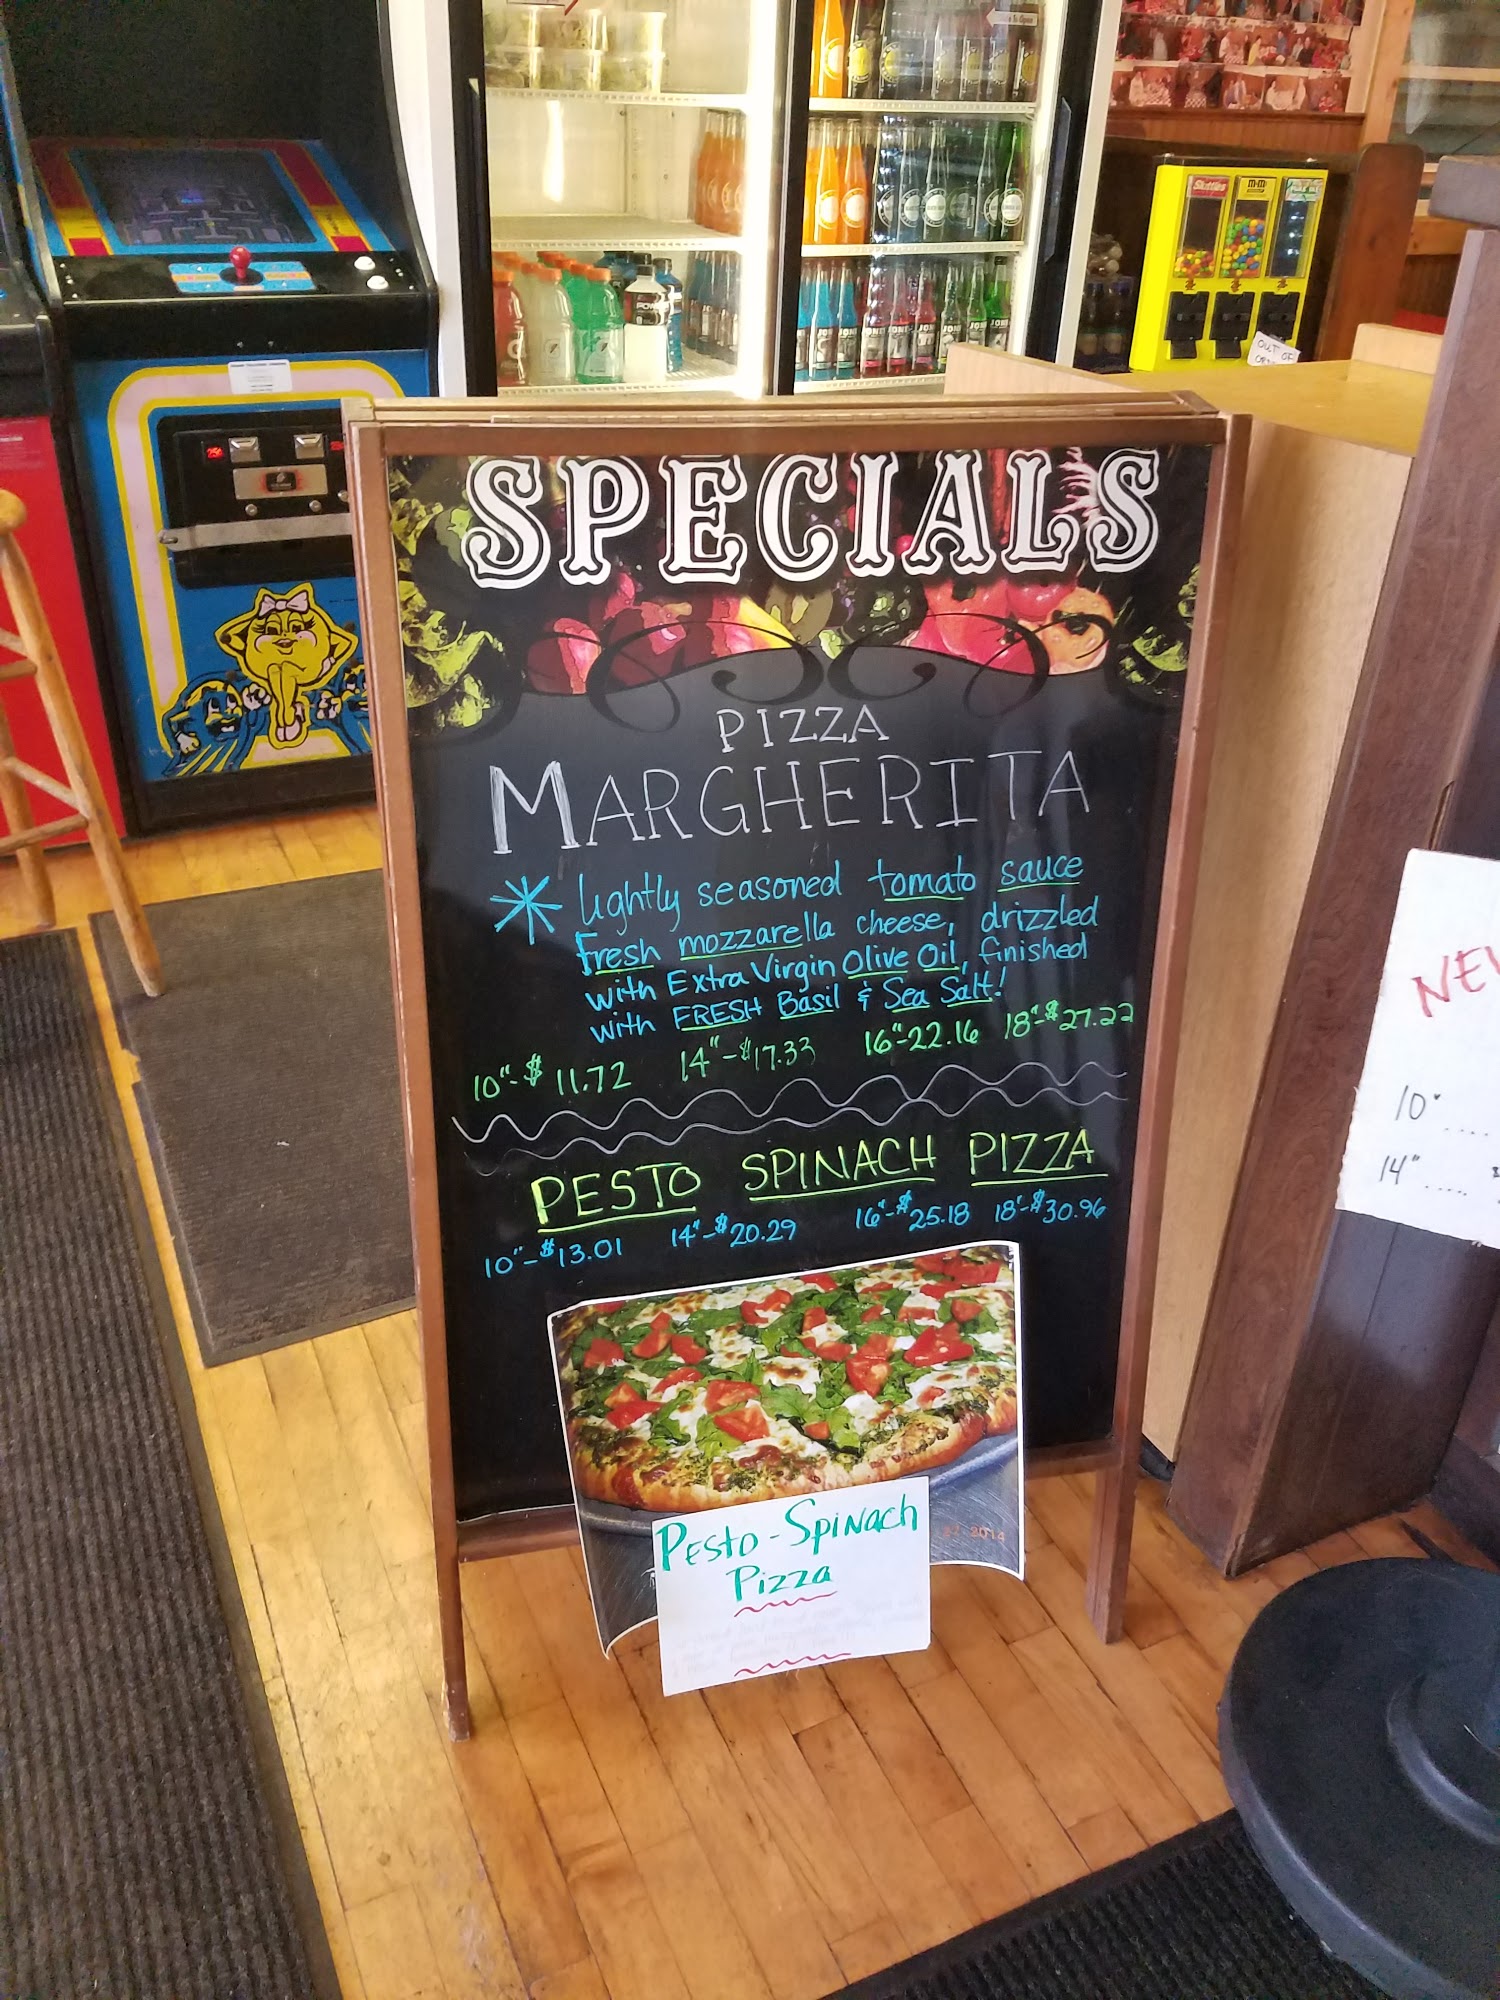 Skittles
m&m's
OUT OF
JONES
JONES
JONES
JONES
25¢
SPECIALS
PIZZA
MARGHERITA
Lightly seasoned tomato sauce
Fresh mozzarella cheese, drizzled
with Extra Virgin Olive Oil, finished
with FRESH Basil & Sea Salt!
10"-$11.72 14"-$17.33 16"-22.16 18"-$27.22
PESTO SPINACH PIZZA
10"-$13.01 14"-$20.29 16"-$25.18 18"-$30.96
2014
Pesto-Spinach
Pizza
NEW
10" ....
14" .....